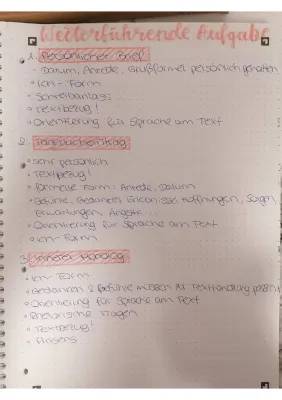 Weiterführende Aufgabe
1. Persönlicher Brief
- Datum, Anrede, Grußformel persönlich gehalten
• Ich-Form
- Schreibanlass
• Textbezug!
• Orientierung für Sprache am Text
2. Tagebucheintrag
• sehr persönlich
• Textbezug!
• formelle Form: Anrede, Datum
• Gefühle, Gedanken, Erlebnisse, Hoffnungen, Sorgen,
Erwartungen, Ängste...
• Orientierung für Sprache am Text
• Ich-Form
3. Innerer Monolog
• Ich-Form
• Gedanken & Gefühle müssen zu Texthandlung passen
• Orientierung für Sprache am Text
• Rhetorische Fragen
• Textbezug!
• Präsens